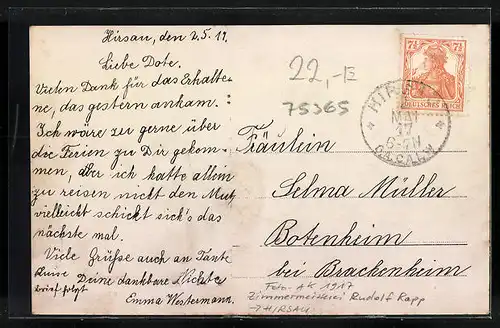 Hirsau, den 2.5.17.
Liebe Dote.
Vielen Dank für das Erhalte-
ne, das gestern ankam.
Ich wäre zu gerne über
die Ferien zu Dir gekom-
men, aber ich hatte allein
zu reisen nicht den Mut,
vielleicht schickt sich's das
nächste mal.
Viele Grüße auch an Tante
Luise Deine dankbare Nichte
Brief folgt Emma Westermann.
22,-
75365
7½ 7½
DEUTSCHES REICH
HIRSAU
2
MAI
17
6-7N
OA.CALW
Fräulein
Selma Müller
Botenheim
bei Brackenheim
Foto-AK 1917
Zimmermeisterei Rudolf Rapp
HIRSAU